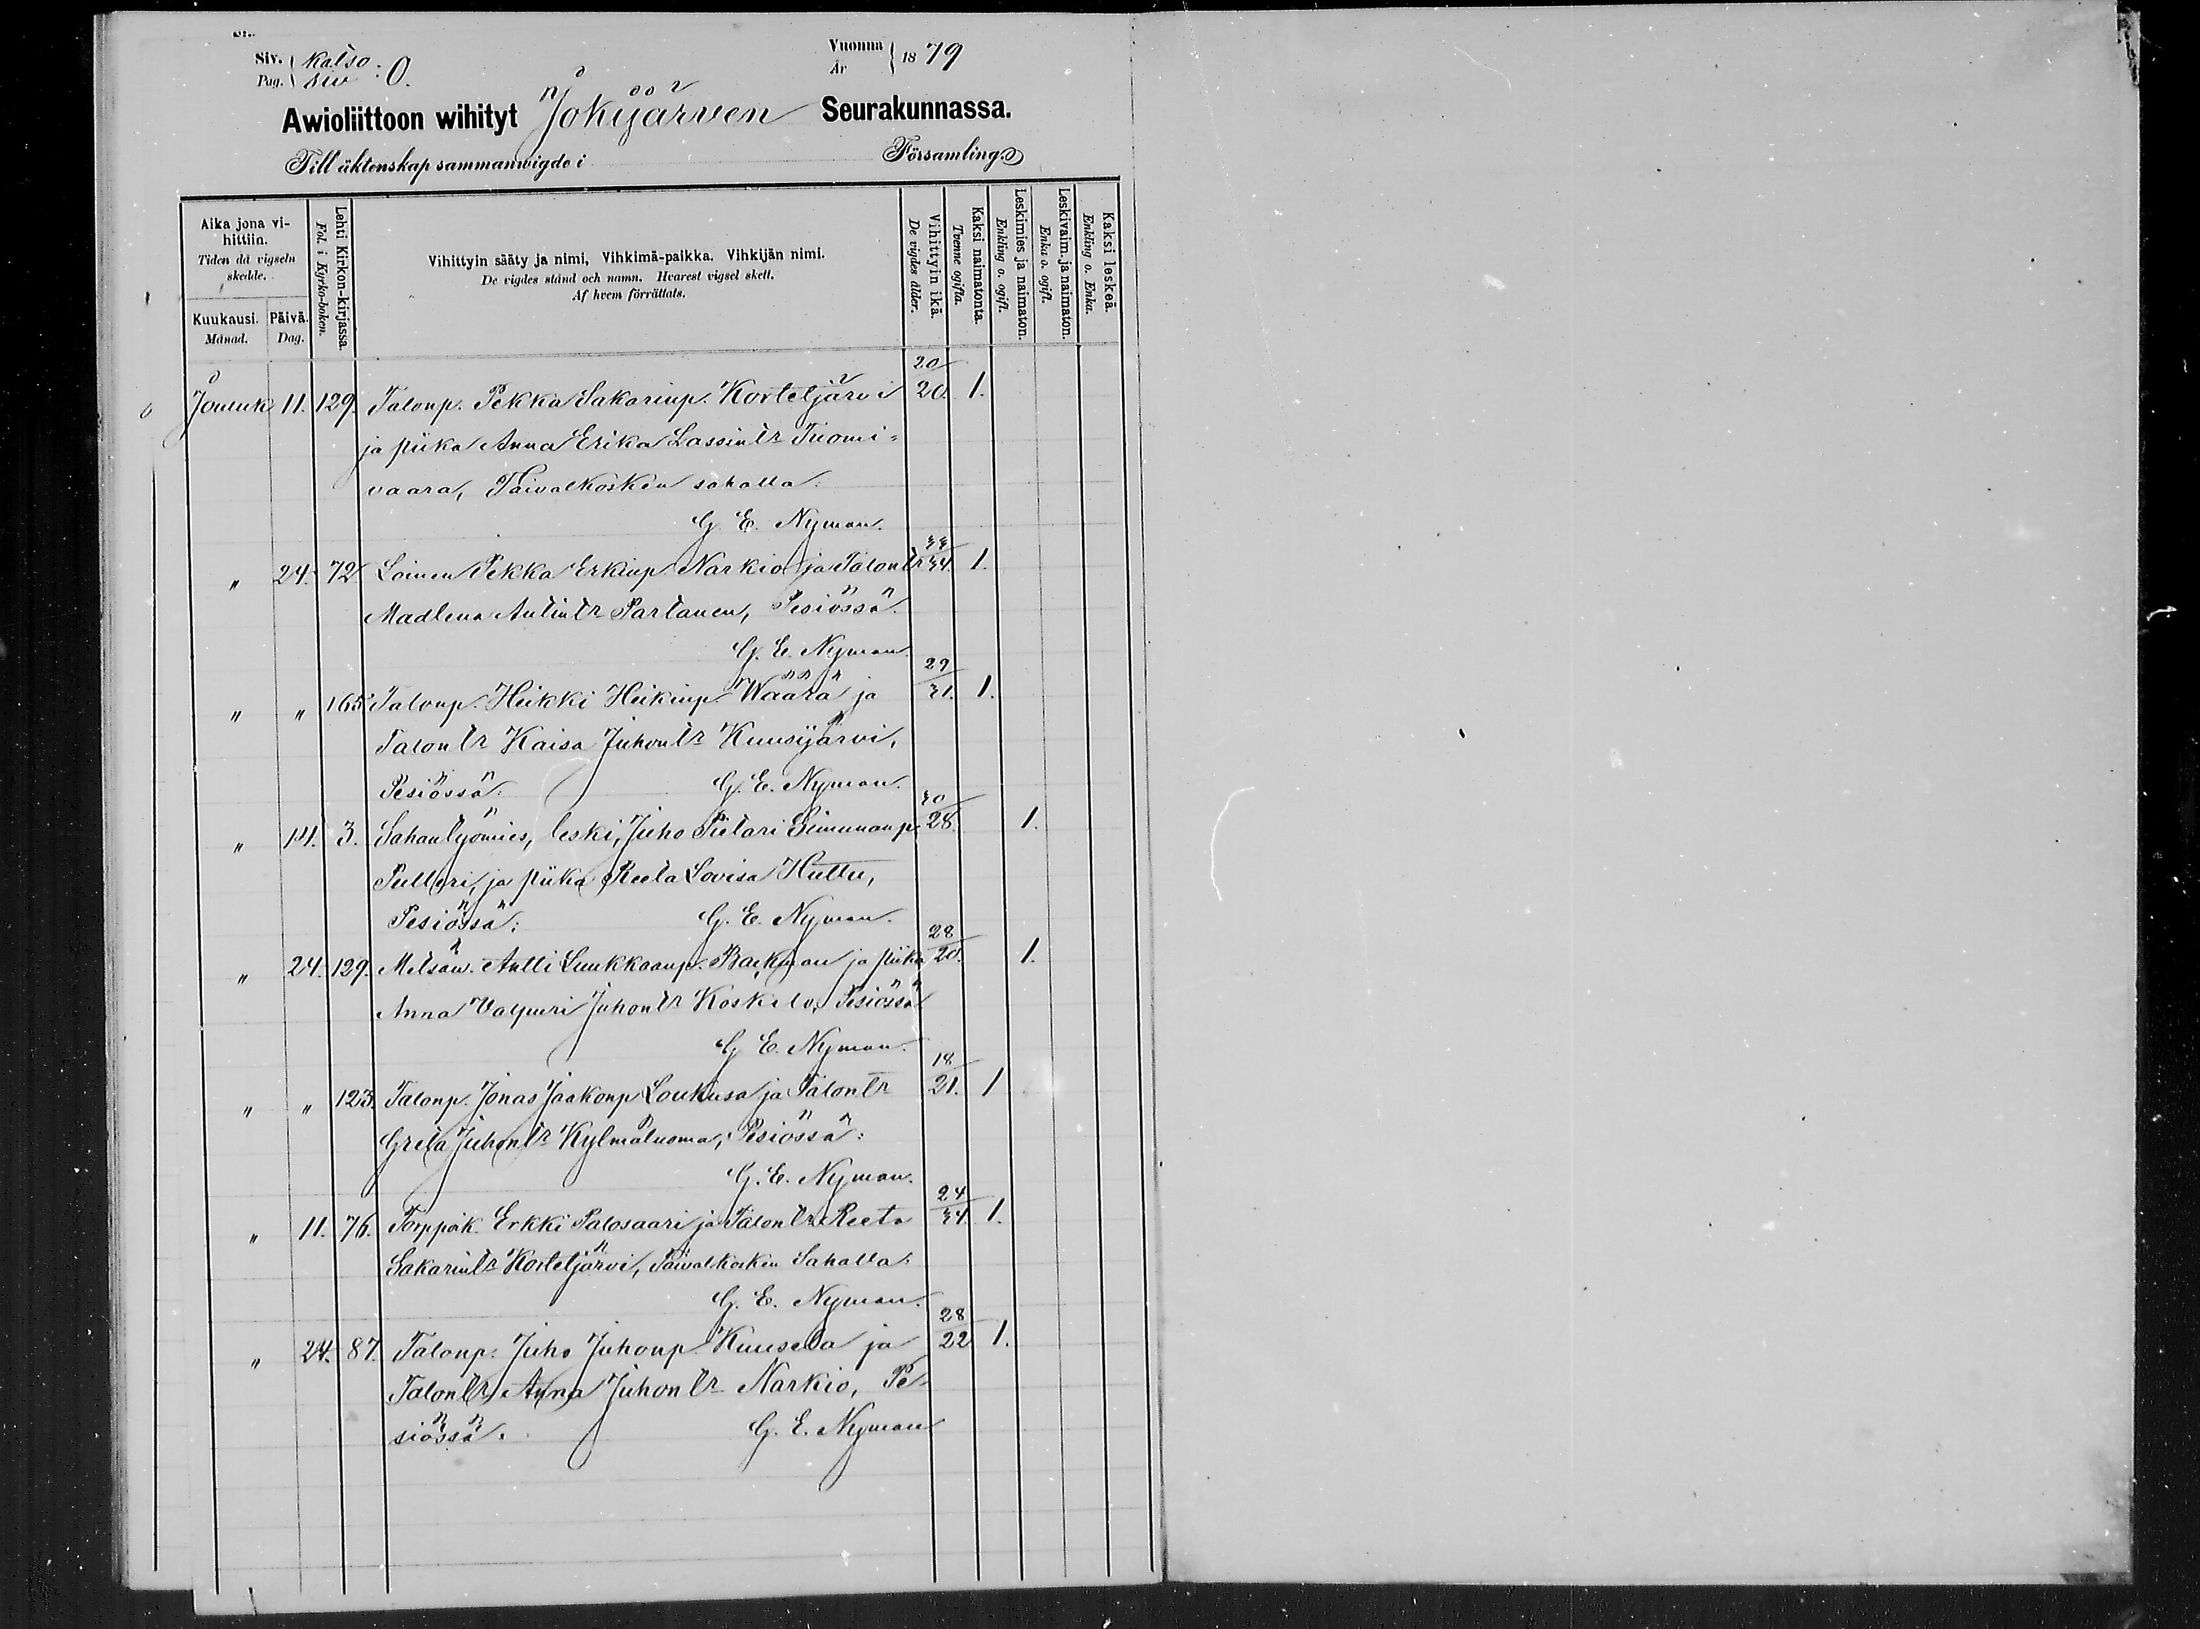 Siv. katso
Pag. siv : 0.
Vuonna
År 1879
Awioliittoon wihityt Jokijärven Seurakunnassa.
Till äktenskap sammanwigde i Församling.
Aika jona vi-
hittiin.
Tiden då vigseln
skedde.
Kuukausi.
Månad.
Päivä.
Dag.
Lehti Kirkon-kirjassa.
Fol. i Kyrko-boken.
Vihittyin sääty ja nimi, Vihkimä-paikka. Vihkijän nimi.
De vigdes stånd och namn. Hvarest vigsel skett.
Af hvem förrättats.
Vihittyin ikä.
De vigdes ålder.
Kaksi naimatonta.
Tvenne ogifta.
Leskimies ja naimaton.
Enkling o. ogift.
Leskivaim. ja naimaton.
Enka o. ogift.
Kaksi leskeä.
Enkling o. Enka.
Jouluk 11. 129. Talonp. Pekka Sakarinp. Korteljärvi 20/20. 1.
ja piika Anna Erika Lassintr Tuomi=
vaara, Taivalkosken sahalla:
G. E. Nyman.
" 24. 72 Loinen Pekka Erkinp. Narkio ja Talontr 33/34. 1.
Madlena Antintr Partanen, Pesiössä.
G. E. Nyman.
" " 165 Talonp. Heikki Heikinp. Wäärä ja 29/31. 1.
Talontr Kaisa Juhontr Kuusijärvi,
Pesiössä. G. E. Nyman.
" 14. 3. Sahantyömies, leski, Juho Pietari Simunanp. 30/28. 1.
Pulteri, ja piika Reeta Lovisa Huttu,
Pesiössä: G. E. Nyman.
" 24. 129. Metsäw. Antti Luukkaanp. Backman ja piika 28/20. 1.
Anna Valpuri Juhontr Koskelo, Pesiössä
G. E. Nyman.
" " 123. Talonp. Jonas Jaakonp. Loukusa ja Talontr 18/21. 1
Greta Juhontr Kylmäluoma, Pesiössä:
G. E. Nyman.
" 11. 76. Torppak. Erkki Palosaari ja Talontr Reeta 24/34. 1.
Sakarintr Korteljärvi, Taivalkosken Sahalla:
G. E. Nyman.
" 24. 87. Talonp. Juho Juhonp. Kuusela ja 28/22 1.
Talontr Anna Juhontr Narkio, Pe-
siössä. G. E. Nyman